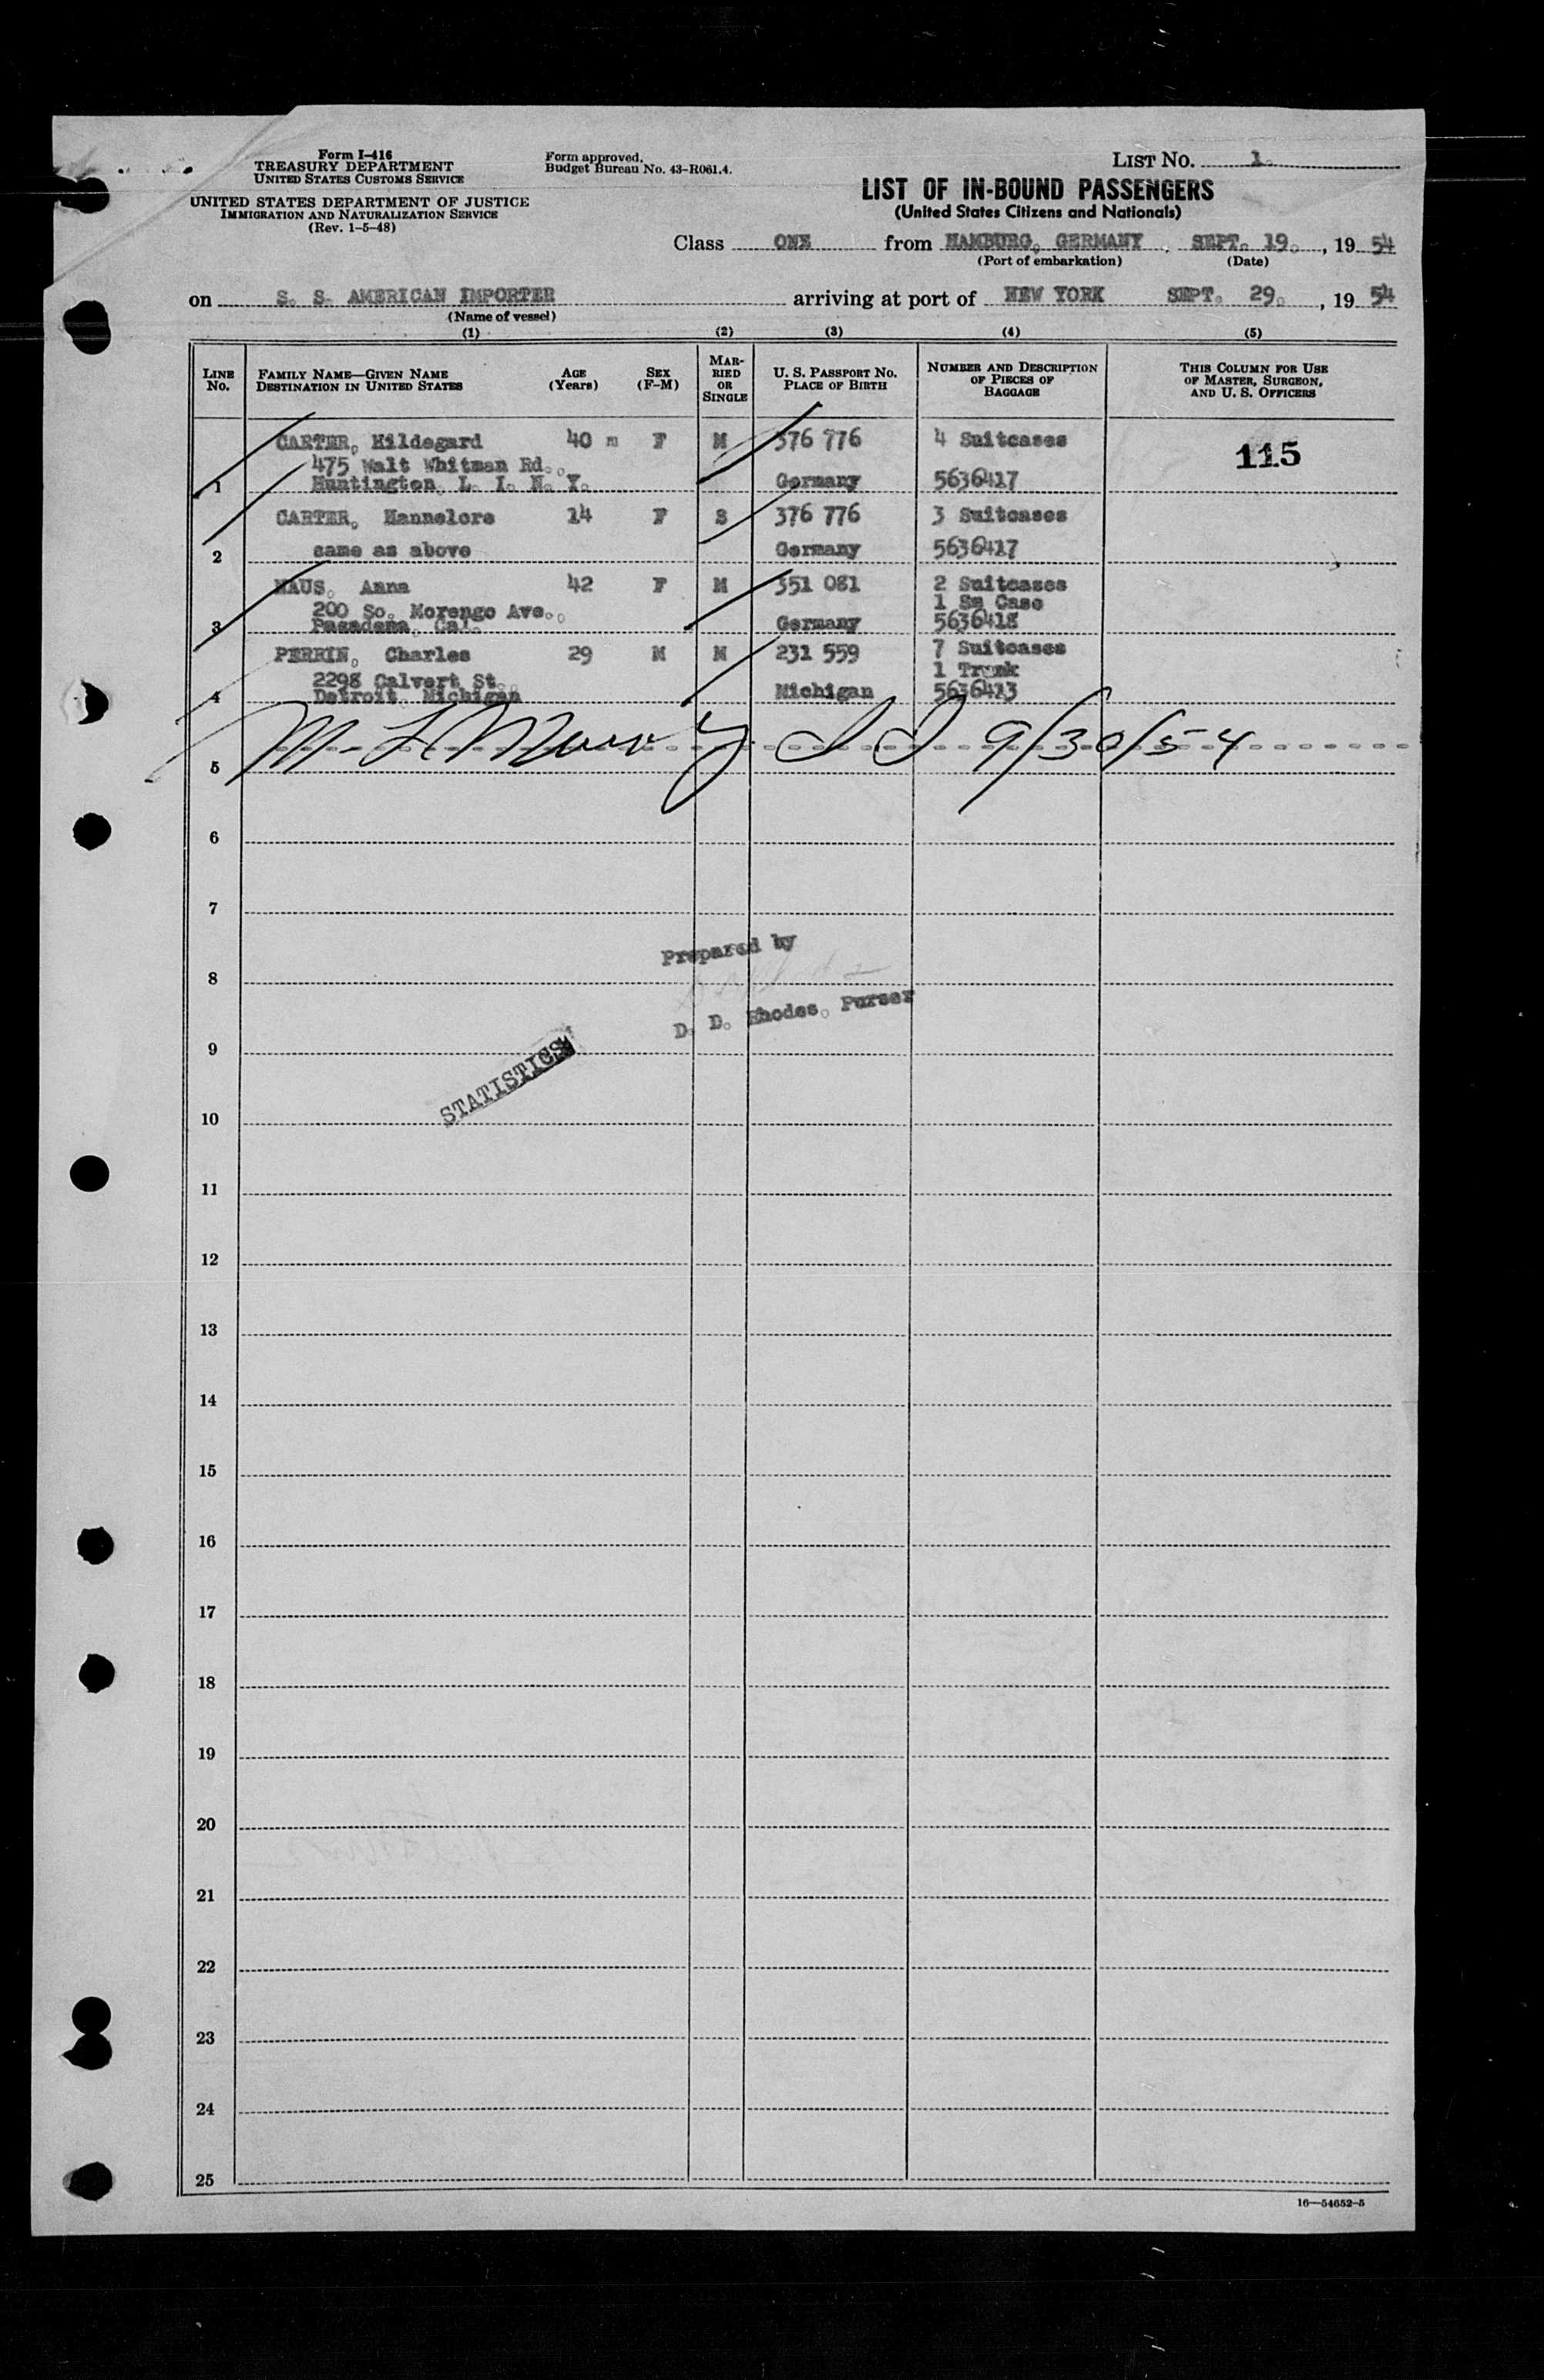 Form I-416
TREASURY DEPARTMENT
UNITED STATES CUSTOMS SERVICE
UNITED STATES DEPARTMENT OF JUSTICE
IMMIGRATION AND NATURALIZATION SERVICE
(Rev. 1-5-48)
Form approved.
Budget Bureau No. 43-R061.4.
LIST NO. 1
LIST OF IN-BOUND PASSENGERS
(United States Citizens and Nationals)
Class ONE from HAMBURG, GERMANY, SEPT. 19, 1954
(Port of embarkation) (Date)
on S. S. AMERICAN IMPORTER arriving at port of NEW YORK SEPT. 29, 1954
(Name of vessel)
(1) (2) (3) (4) (5)
LINE No. FAMILY NAME—GIVEN NAME DESTINATION IN UNITED STATES AGE (Years) SEX (F-M) MARRIED OR SINGLE U. S. PASSPORT NO. PLACE OF BIRTH NUMBER AND DESCRIPTION OF PIECES OF BAGGAGE THIS COLUMN FOR USE OF MASTER, SURGEON, AND U. S. OFFICERS
CARTER, Hildegard 40 m F M 376 776 4 Suitcases 115
475 Walt Whitman Rd.,
1 Huntington, L. I. N. Y. Germany 5636417
CARTER, Hannelore 14 F S 376 776 3 Suitcases
2 same as above Germany 5636417
HAUS, Anna 42 F M 351 081 2 Suitcases
200 So. Morengo Ave., 1 Sm Case
3 Pasadena, Cal. Germany 5636418
PERRIN, Charles 29 M M 231 559 7 Suitcases
2298 Calvert St., 1 Trunk
4 Detroit, Michigan Michigan 5636413
5 9/30/54
6
7
Prepared by
8
D. D. Rhodes, Purser
9
STATISTICS
10
11
12
13
14
15
16
17
18
19
20
21
22
23
24
25
16—54652-5